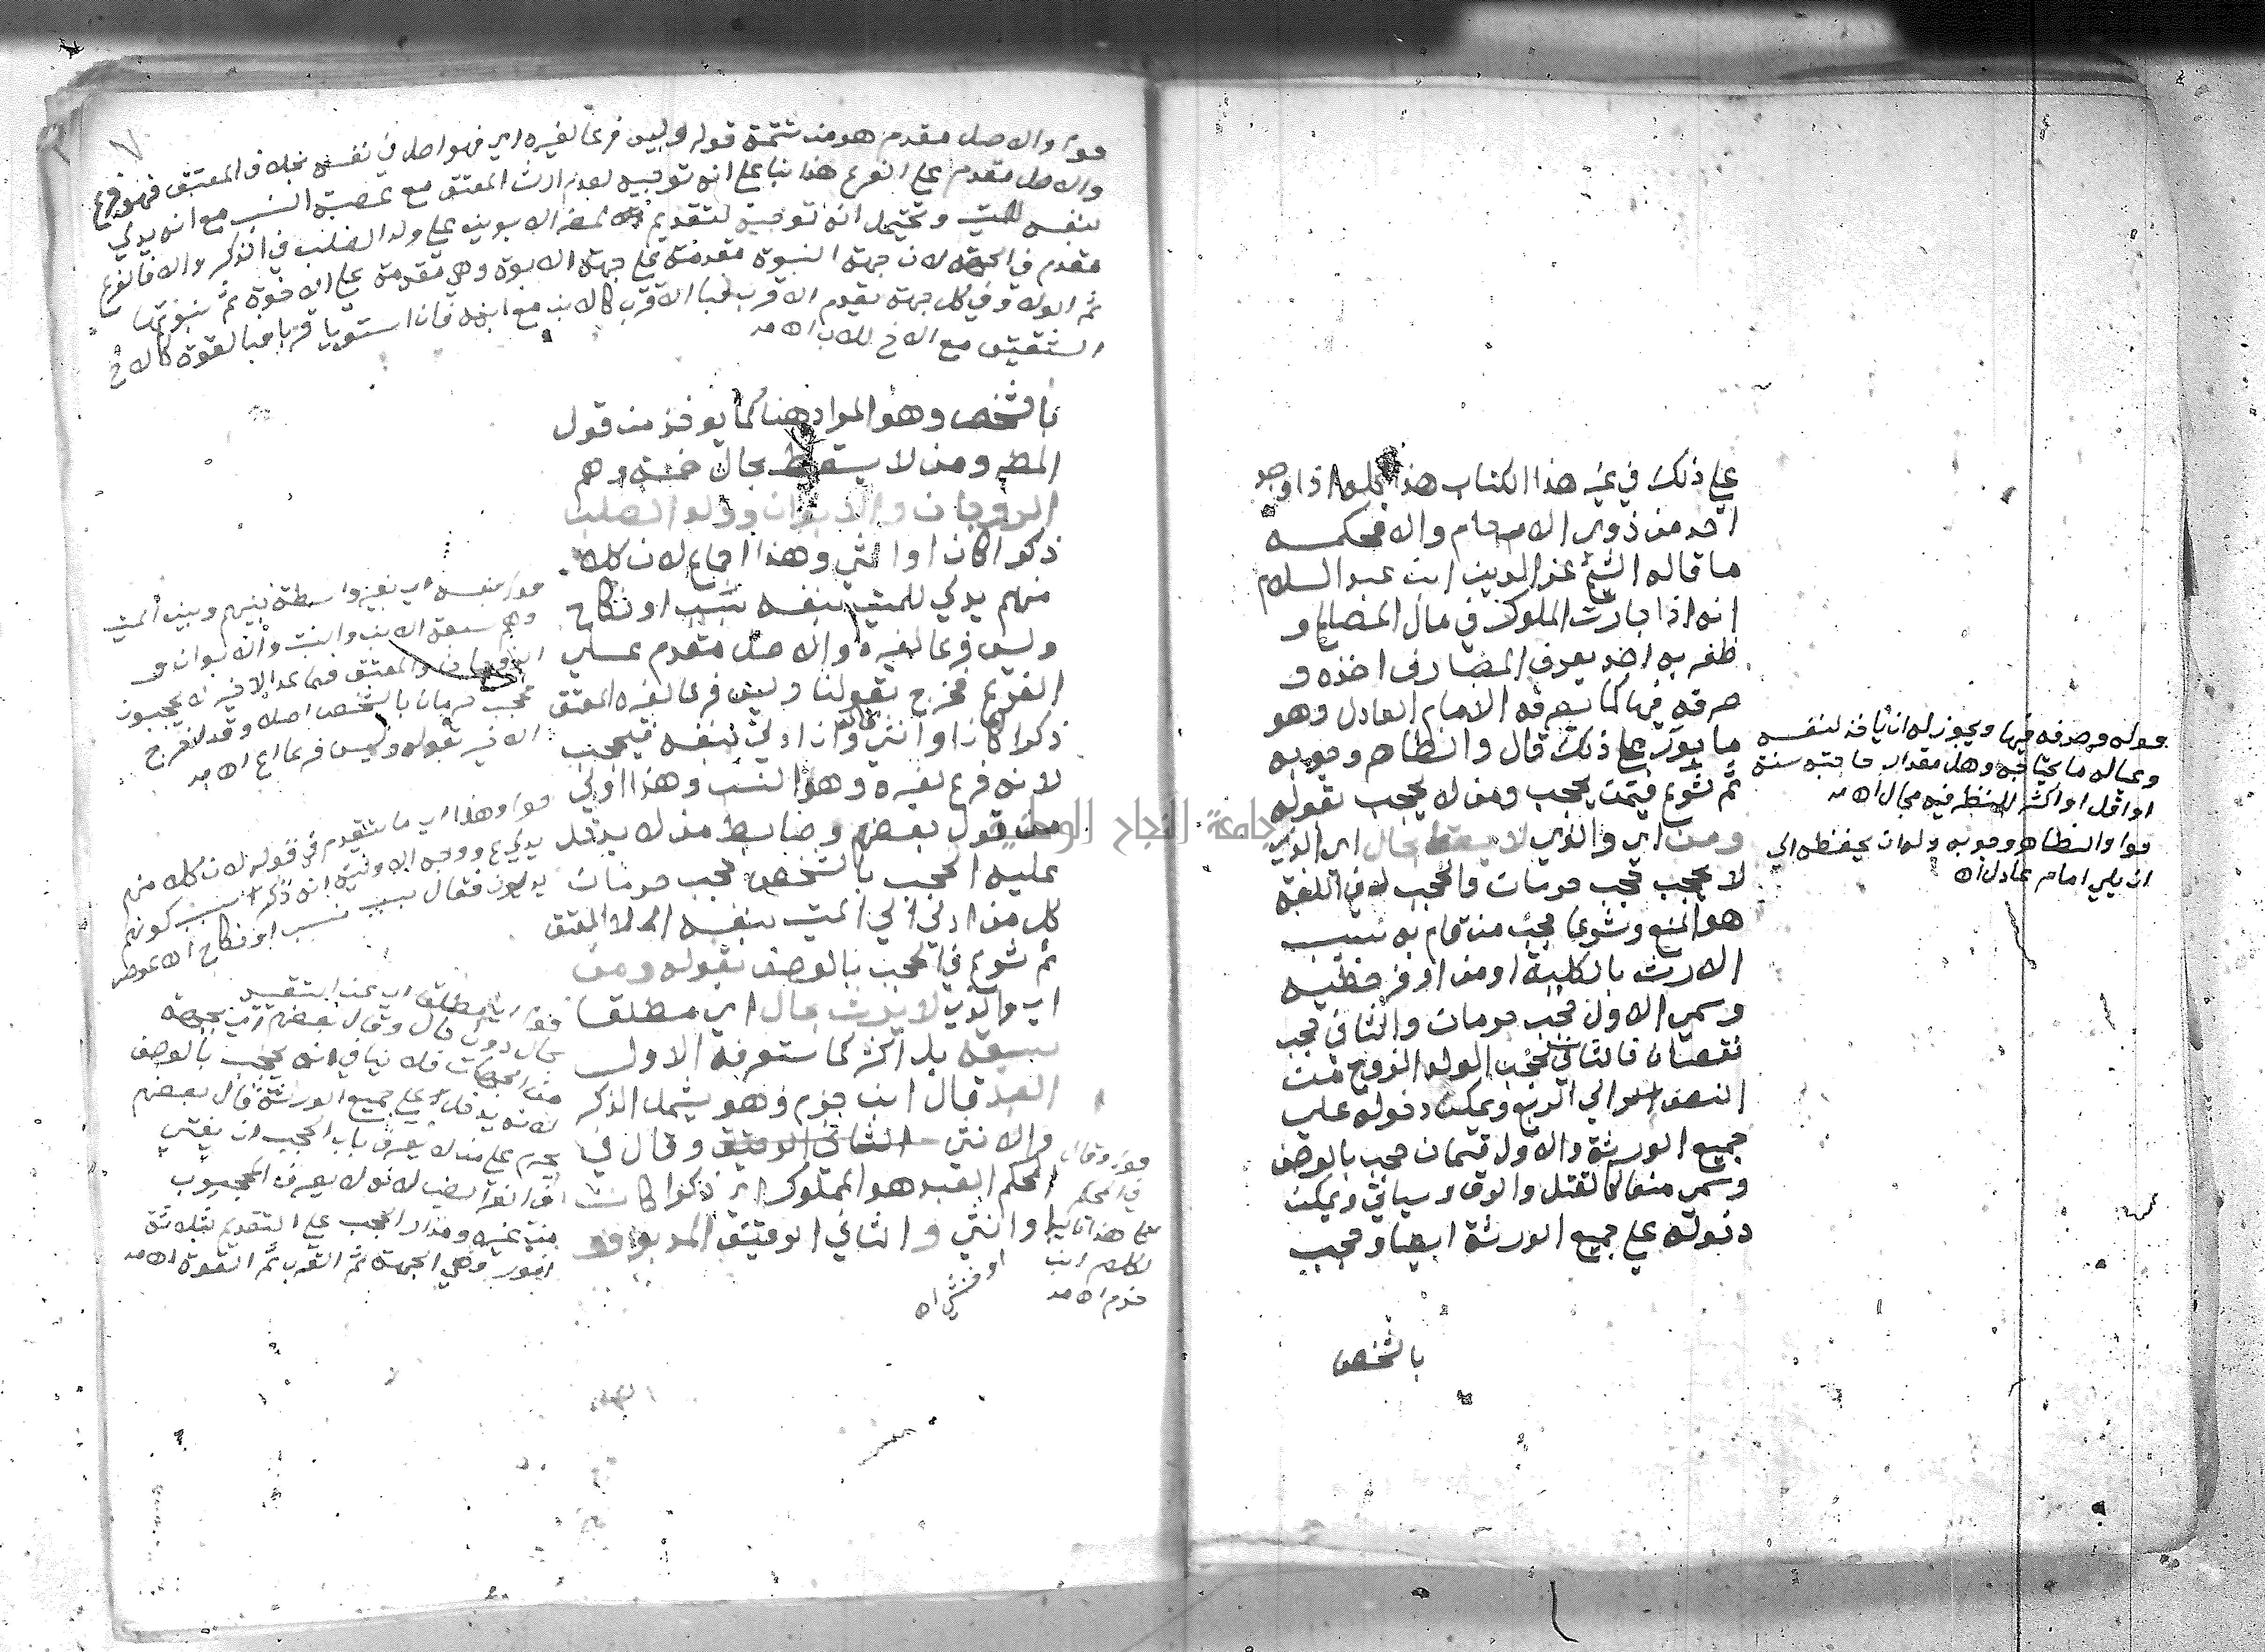 على ذلك في غير هذا الكتاب هذا كله اذا وجد
احد من ذوي الارحام والا فحكمه
ما قاله الشيخ عز الدين ابن عبد السلام
انه اذا جارت الملوك في مال المصالح و
ظفر به احد يعرف المصارف اخذه و
صرفه فيها كما يصرفه الامام العادل وهو
ماجور على ذلك قال والظاهر وجوبه
ثم شرع فيمن يحجب ومن لا يحجب بقوله
ومن اي والذي لا يسقط بحال اي الذي
لا يحجب حجب حرمان والحجب لغة
هو المنع وشرعا منع من قام به سبب
الارث بالكلية او من اوفر حظيه
وسمي الاول حجب حرمان والثاني حجب
نقصان فالثاني كحجب الولد الزوج من
النصف الى الربع ويمكن دخوله على
جميع الورثة والاول قسمان حجب بالوصف
وسمي منعا كالقتل والرق وسياتي ويمكن
دخوله على جميع الورثة ايضا وحجب
بالشخص
قوله وصرفه فيها ويجوز له ان ياخذ لنفسه
وعياله ما يحتاجه وهل مقدار حاجته سنة
او اقل او اكثر للنظر فيه مجال اه
قوله والظاهر وجوبه ولو ان يحفظه الى
ان يلي امام عادل اه
قوله والاصل مقدم هو من تتمة قوله وليس فرعا لغيره اي فهو اصل في نفسه بخلاف المعتق فهو فرع
والاصل مقدم على الفرع هذا بناء على انه توجيه لعدم ارث المعتق مع عصبة النسب مع انه يدلي
بنفسه للميت ويحتمل انه توجيه لتقديم الابوين على ولد الصلب في الذكر والا فالفرع
مقدم في الجهة لان جهة البنوة مقدمة على جهة الابوة وهي مقدمة على الاخوة ثم بنوتها
ثم الولاء وفي كل جهة يقدم الاقرب فالاقرب كالابن مع ابنه فان استويا قربا فبالقوة كالاخ
الشقيق مع الاخ للاب اه
بالشخص وهو المراد هنا كما يوخذ من قول
المص ومن لا يسقط بحال خمسة وهم
الزوجان والابوان وولد الصلب
ذكرا كان او انثى وهذا اجماع لان كلا
منهم يدلي للميت بنفسه بنسب او نكاح
وليس فرعا لغيره والاصل مقدم على
الفرع فخرج بقولنا وليس فرعا لغيره المعتق
ذكرا كان او انثى فانه وان ادلى بنفسه فيحجب
لانه فرع لغيره وهو النسب وهذا اولى
من قول بعضهم وضابط من لا يدخل
عليه الحجب بالشخص حجب حرمان
كل من ادلى الى الميت بنفسه الا المعتق
ثم شرع في الحجب بالوصف بقوله ومن
اي والذي لا يرث بحال اي مطلقا
سبعة بل اكثر كما ستعرفه الاول
العبد قال ابن حزم وهو يشمل الذكر
والانثى الثاني الرقيق وقال في
المحكم العبد هو المملوك اي ذكرا كان
او انثى والثاني الرقيق المدبر
او خنثى اه
قوله بنفسه اي بغير واسطة بينهم وبين الميت
وهم سبعة الابن والبنت والابوان و
الزوجان والمعتق فما عدا الاخير لا يحجبون
حجب حرمان بالشخص اصلا وقد اخرج
الاخير بقوله وليس فرعا الخ اه
قوله وهذا اي ما تقدم في قوله لان كلا منهم
يدلي الخ ووجه الاولوية انه ذكر سبب كونهم
يدلون فقال بنسب او نكاح اه
قوله اي مطلقا اي عن التقييد
بحال دون حال وقال بعضهم اي بجهة
من الجهات فلا ينافي انه يحجب بالوصف
لانه يدخل على جميع الورثة قال بعضهم
يحرم على من لا يعرف باب الحجب ان يفتي
في الفرائض لانه لا يعرف المحجوب
من غيره ومدار الحجب على التقديم بثلاثة
امور وهي الجهة ثم القرب ثم القوة اه
قوله وقال
في المحكم
على هذا تاييد
لكلام ابن
حزم اه
جامعة النجاح الوطنية